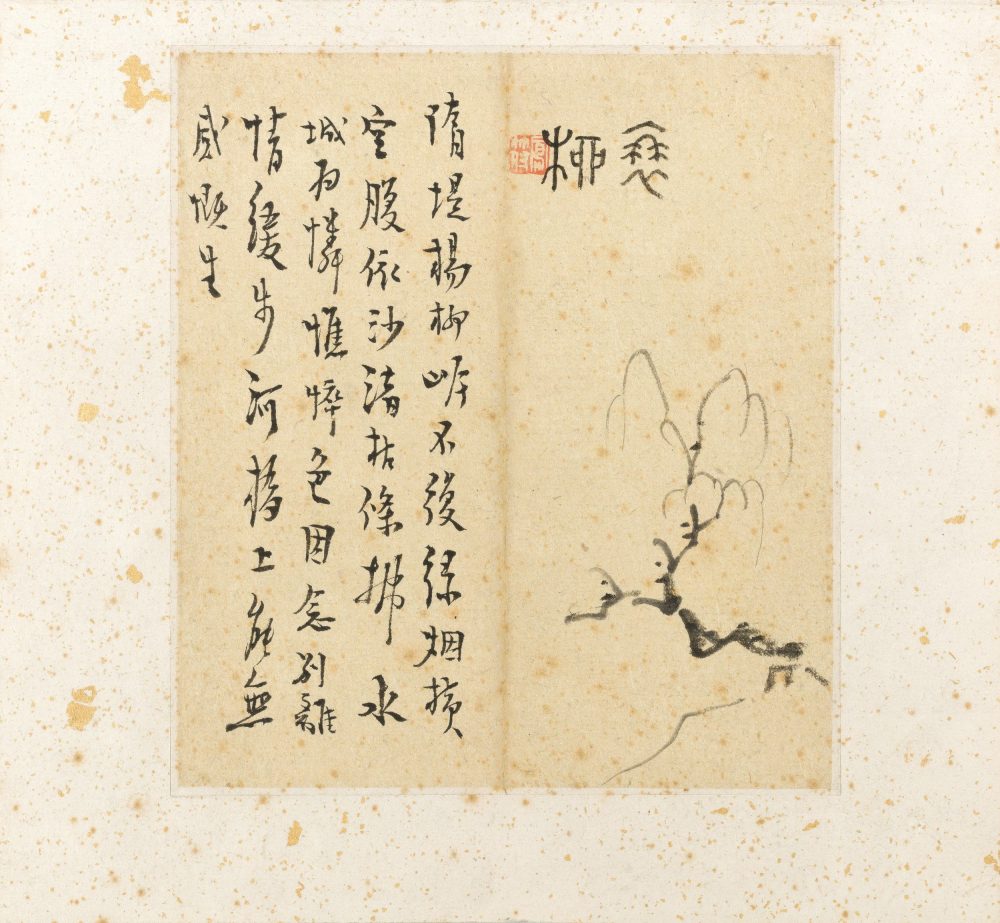 衰柳
隋堤楊柳岸不復綠烟橫
空腹依沙渚枯條拂水
城為憐憔悴色因念別離
情緩步河橋上能無
感慨生